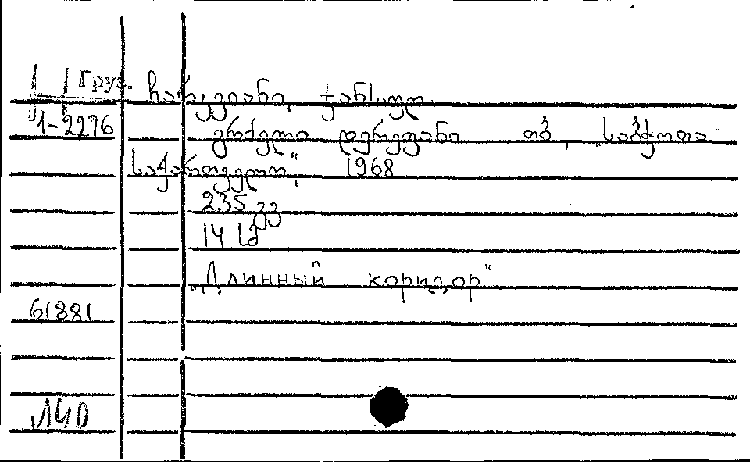 Груз. ჩარკვიანი, ჯანსუღ.
1-2276 გრძელი დერეფანი თბ, „საბჭოთა
საქართველო", 1968
235 გვ
14 სმ
„Длинный коридор"
61881